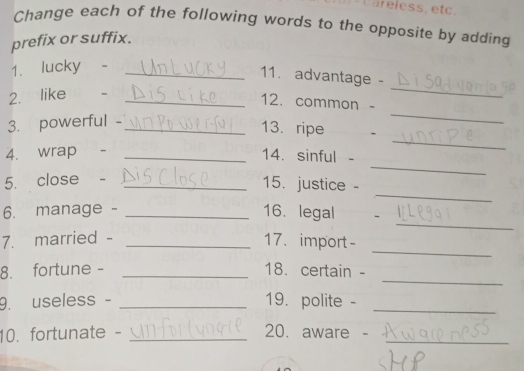 careless, etc.
Change each of the following words to the opposite by adding
prefix or suffix.
1. lucky - UnLUCKY
2. like - DisLike
3. powerful - unPowerful
4. wrap -
5. close - DisClose
6. manage -
7. married -
8. fortune -
9. useless -
10. fortunate - unfortunate
11. advantage -
12. common -
13. ripe - unripe
14. sinful -
15. justice -
16. legal - iLLegal
17. import -
18. certain -
19. polite -
20. aware - Awareness